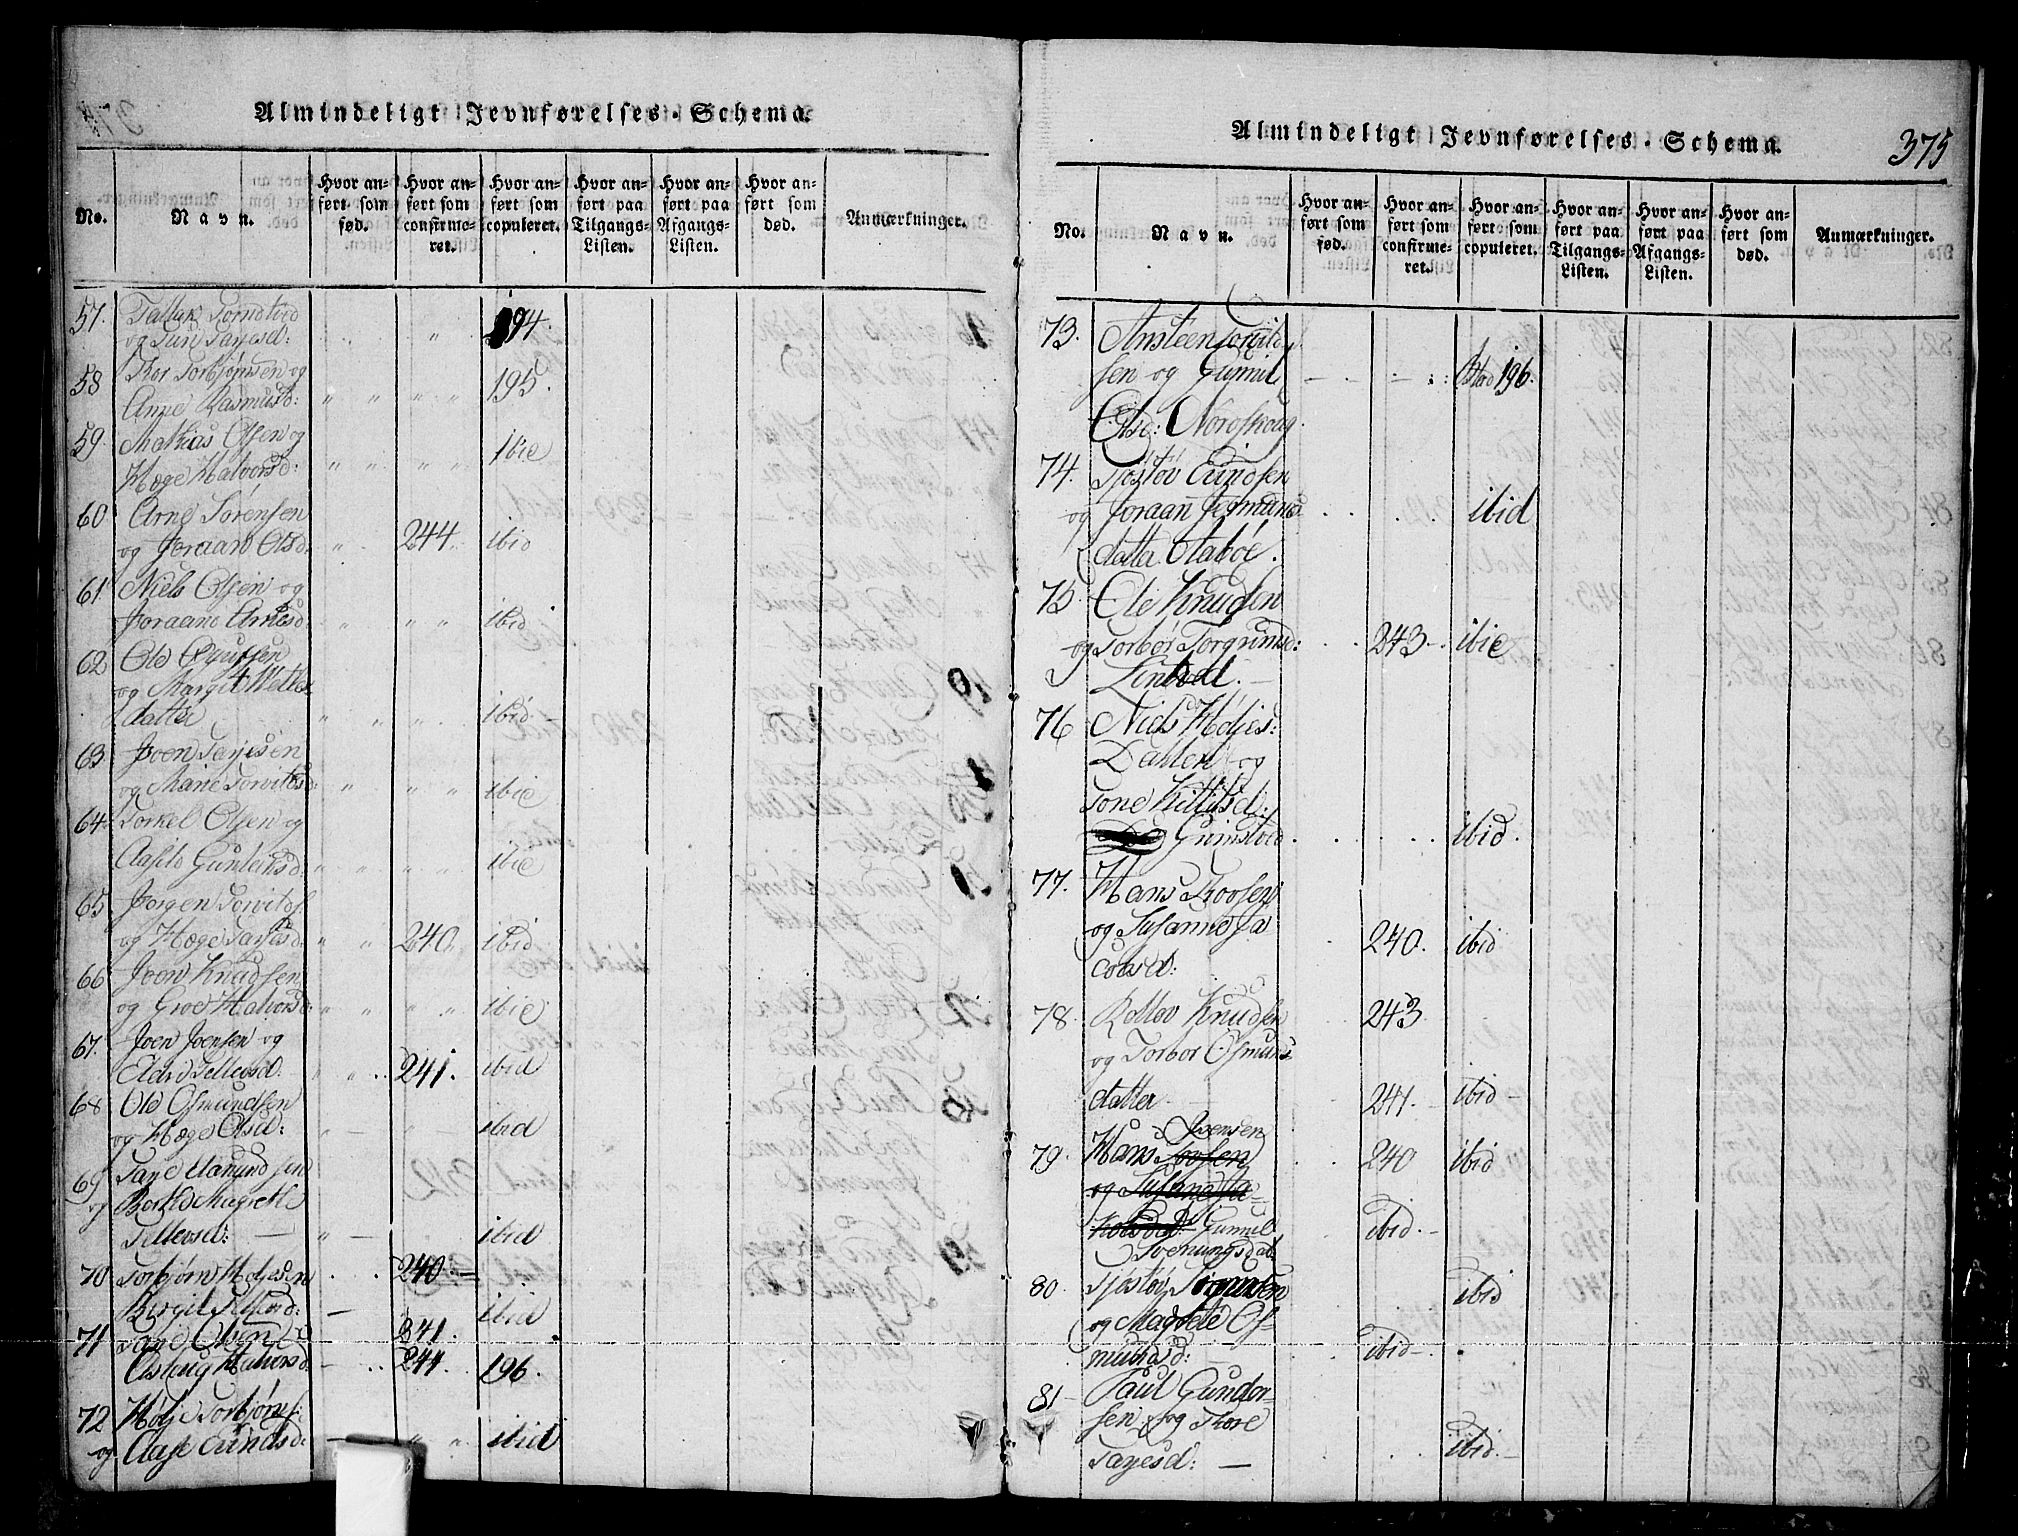 Almindeligt Jevnførelses-Schema.
No.
Navn.
Hvor anført som fød.
Hvor anført som confirmeret.
Hvor anført som copuleret.
Hvor anført paa Tilgangs-Listen.
Hvor anført paa Afgangs-Listen.
Hvor anført som død.
Anmærkninger.
57. Tallak
og Juri Tarjesd: " 194.
58 Thor Torbjørnsen og
Anne Rasmusd: " " " " 195.
59. Mathias Olsen og
Hæge Halvorsd: " " " " ibid
60 Arne Sørensen
og Joraan Olsd. " 244. ibid
61. Niels Olsen og
Joraand Arnesd " " " ibid
62 Ole Knutsen
og Margit
datter " " " " ibid –
63 Joen Tarjesen
og Marie Torvildsd: " " " ibid
64. Torkel Olsen og
Aasild Gunleiksd. " " " " ibid
65 Jørgen Torvilds.
og Hæge Tarjesd: " " 240. ibid
66 Joen Knudsen
og Groe Halvorsd: " " " " ibid
67. Joen Joensen og
Tellevsd. " " 241. ibid
68 Ole Osmundsen
og Hæge Olsd: " " ibid
69 Tarje Aamundsen
og Berthe Magrethe
Tellevsd: — " — ibid
70 Torbjørn Holjesen . . 240. —
Birgit — ibid
71 Tarje Olsen og 241.
Aslaug Halvorsd – . . 241 196.
72 Holje Torbjørns:
og Aase Eivindsd: — " " ibid
Almindeligt Jevnførelses-Schema.
375
No.
Navn.
Hvor anført som fød.
Hvor anført som confirmeret.
Hvor anført som copuleret.
Hvor anført paa Tilgangs-Listen.
Hvor anført paa Afgangs-Listen.
Hvor anført som død.
Anmærkninger.
73. Ansteen Torvild
sen og Gunnil 196.
Olsd: Noreskoug.
74. Sjøstøv Eivindsen
og Joraan Sigmunds ibid
datter Aabøe.
75. Ole Knudsen
og Torbør Torgrimsd: . . 243 – ibid
Lintved. —
76 Niels Holjes:
Datter og
Tone Kittilsd.
Grimstvedt . . . ibid.
77. Hans Troosen
og Susanne Ja
cobsd: 240. ibid
78. Rollov Knudsen 243
og Torbor Osmuns
datter. 241. ibid –
79. Hans Joensen . . 240 ibid
og Susane Ja=
kobsd: Gunnil ibid. –
Svenungsdat
80. Sjøstøv Sigmunsen ibid
og Magrete Os=
mundsd: — ibid –
81 – Paul Gundersen
sen og Thore
Tarjesd: — ibid. –